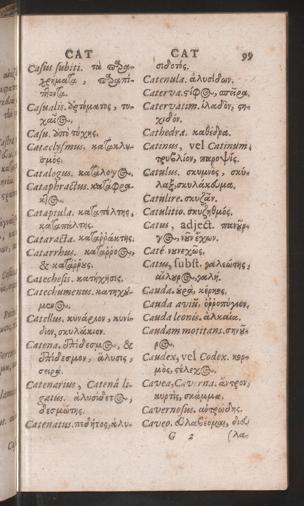 CAT
CAT
99
Casus subiti. τὰ
Casualis.
Casu. ὑπὸ τύχης.
Cataclysmus. κατακλυ-
σμός.
Catalogus. κατάλογος.
Cataphractus. κατάφρα-
Catapulta. καταπέλτης,
καταπέλτης.
Cataracta. καταῤῥάκτης.
Catarrhus. κατάῤῥοος,
& κατάῤῥους.
Catechesis. κατήχησις.
Catechumenus. κατηχού-
μενος.
Catellus. κυνάριον, κυνί-
διον, σκυλάκιον.
Catena. ἐπίδεσμος, &
ἐπίδεσμον, ἅλυσις,
σειρά.
Catenarius, Catena li-
gatus. ἁλυσίδετος,
δεσμώτης.
Catenatus. πεδήτης, ἁλυ-
σιδοτός.
Catenula. ἁλυσίδιον.
Caterva. στῖφος, σπεῖρα.
Catervatim. ἰλαδόν, στι-
χηδόν.
Cathedra. καθέδρα.
Catinus, vel Catinum,
τρυβλίον, παροψίς.
Catulus. σκύμνος, σκύ-
λαξ, σκυλάκευμα.
Catulire. σκυζᾶν.
Catulitio. σκυζηθμός.
Catus, adject. πανοῦρ-
γος, νουνέχων.
Catè. νουνεχῶς.
Catus, subst. γαλεώτης,
αἴλουρος, γαλῆ.
Cauda. οὐρά, κέρκος.
Cauda avium. ὀῤῥοπύγιον.
Cauda leonis. ἀλκαία.
Caudam motitans. σείου-
ρος.
Caudex, vel Codex. κορ-
μός, στέλεχος.
Cavea, Caverna. ἄντρον,
κυρτίς, σκάμμα.
Cavernosus. ἀντρώδης.
Caveo. εὐλαβέομαι, διευ-
G 2
(λα-